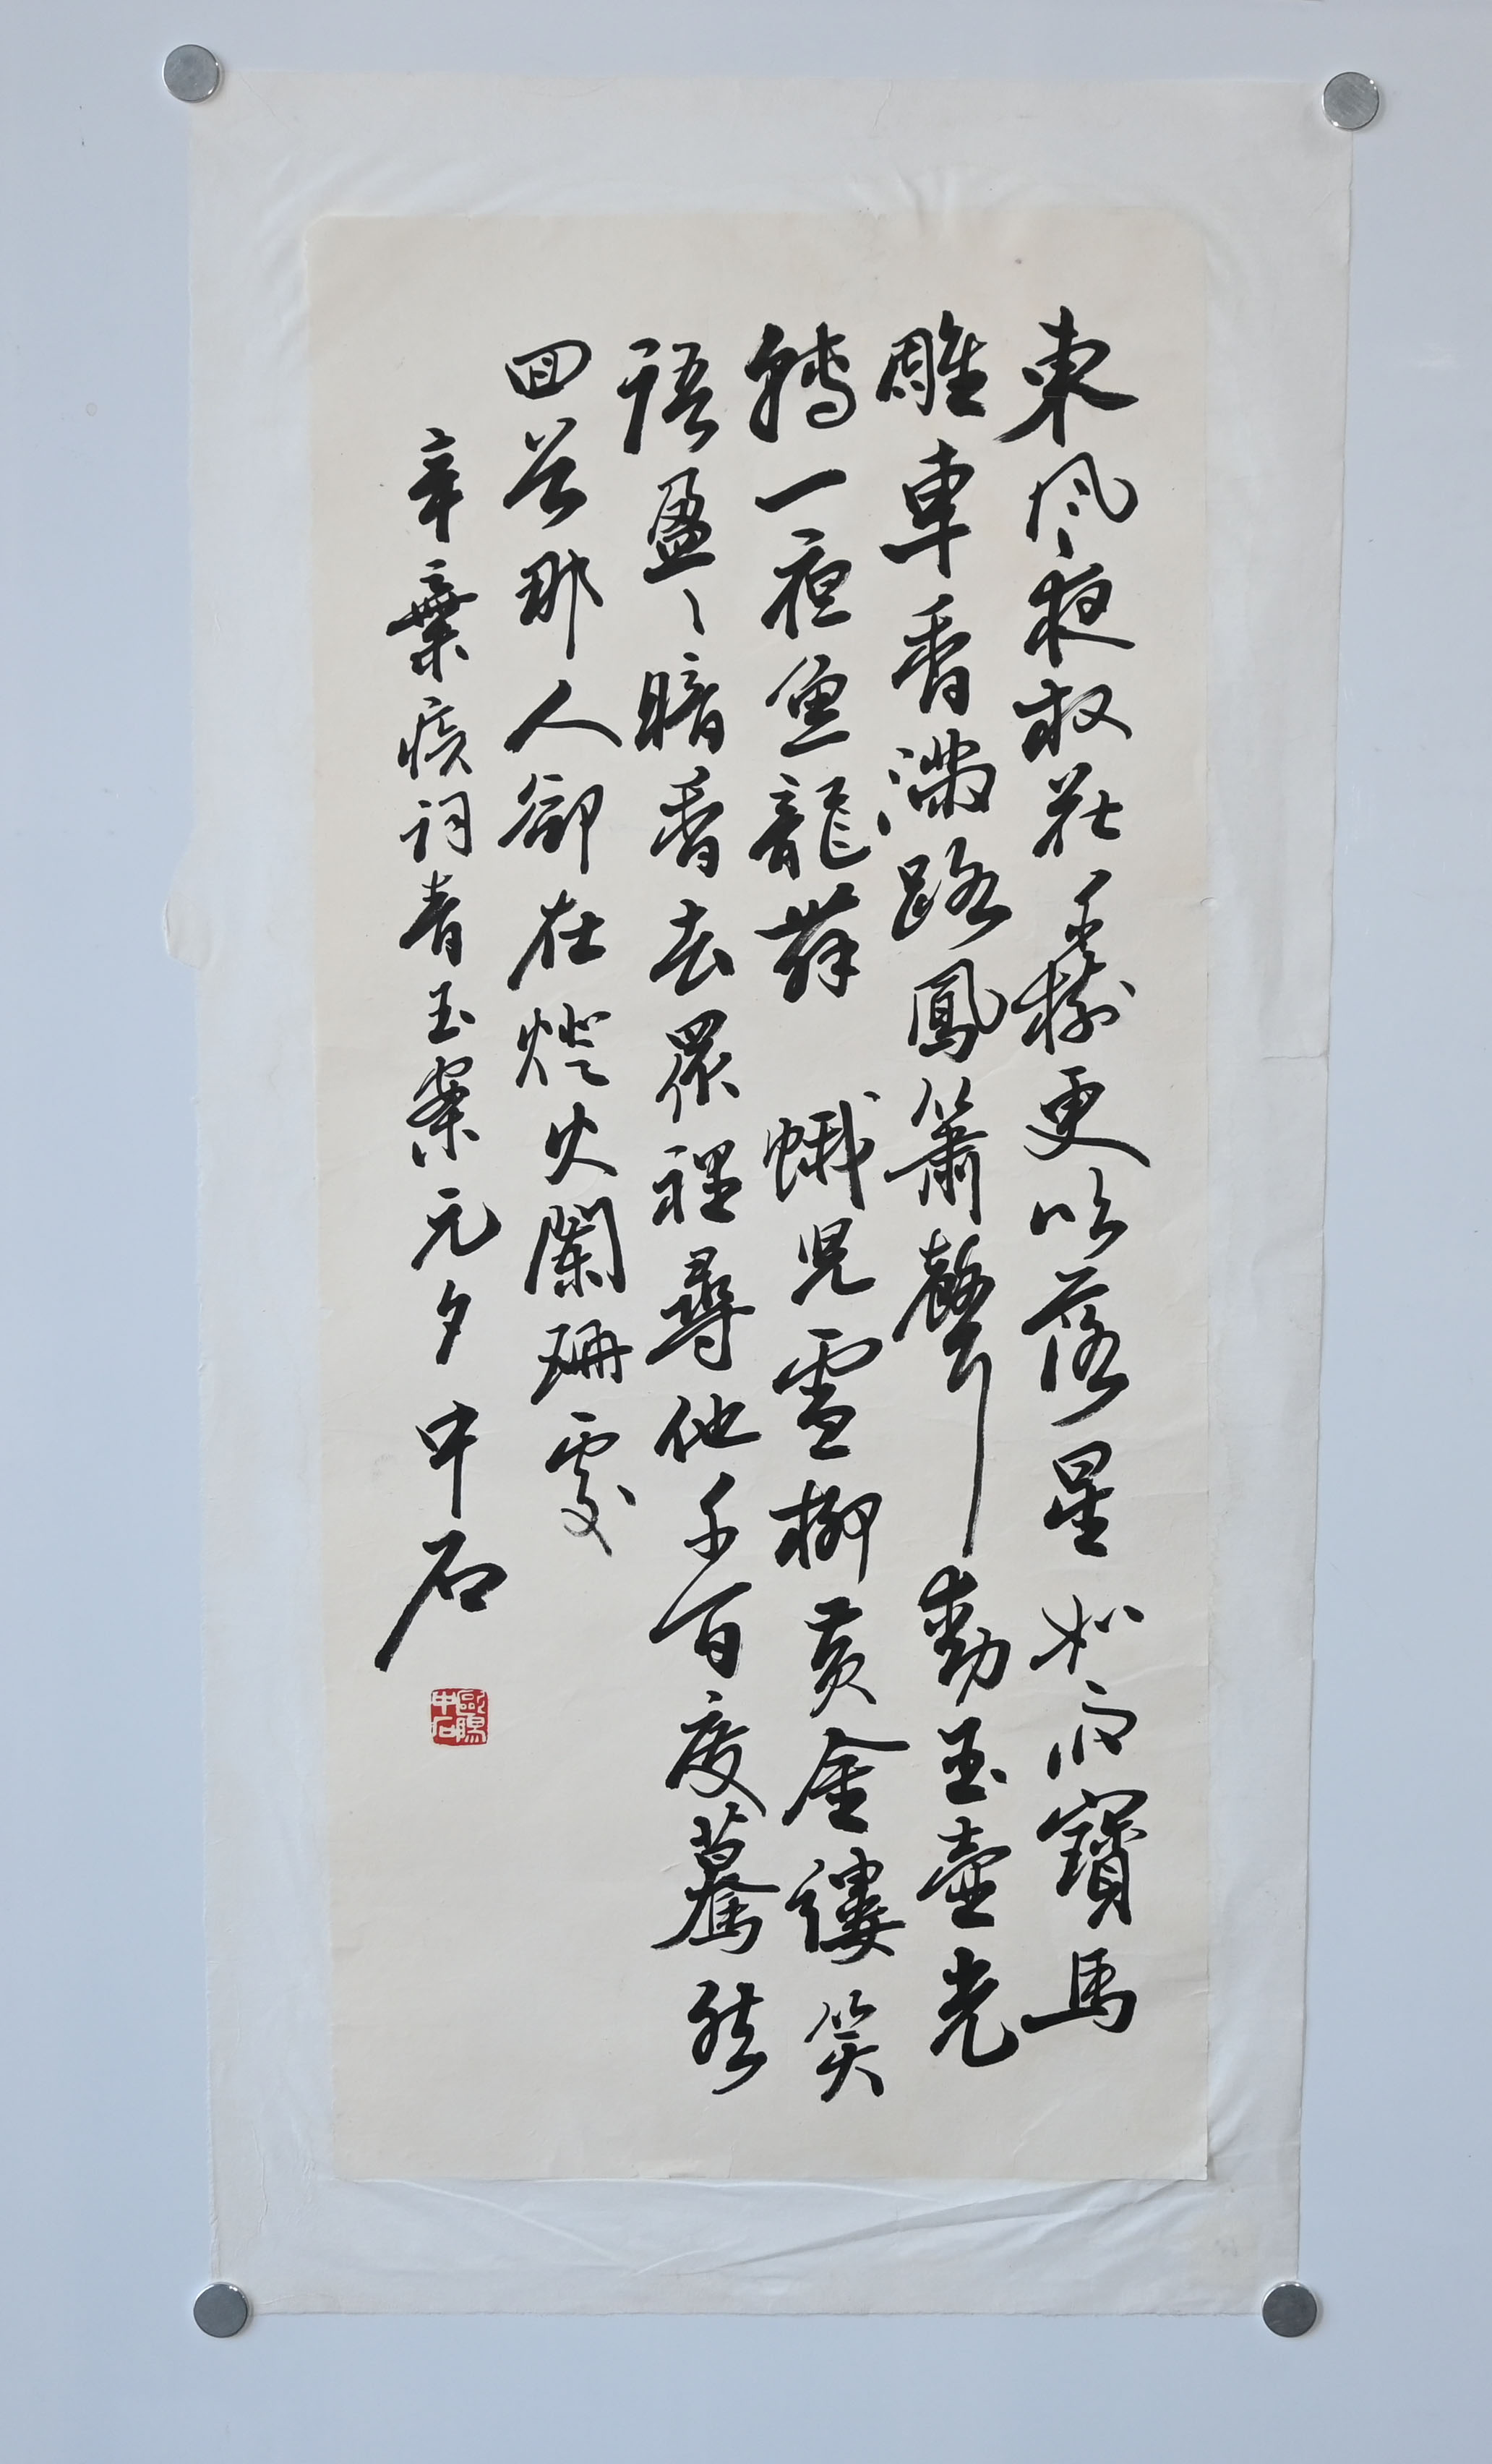 東風夜放花千樹更吹落星如雨寶馬
雕車香滿路鳳簫聲動玉壺光
轉一夜魚龍舞 蛾兒雪柳黃金縷笑
語盈〻暗香去眾裡尋他千百度驀然
回首那人卻在燈火闌珊處
辛棄疾詞青玉案元夕中石
歐陽中石